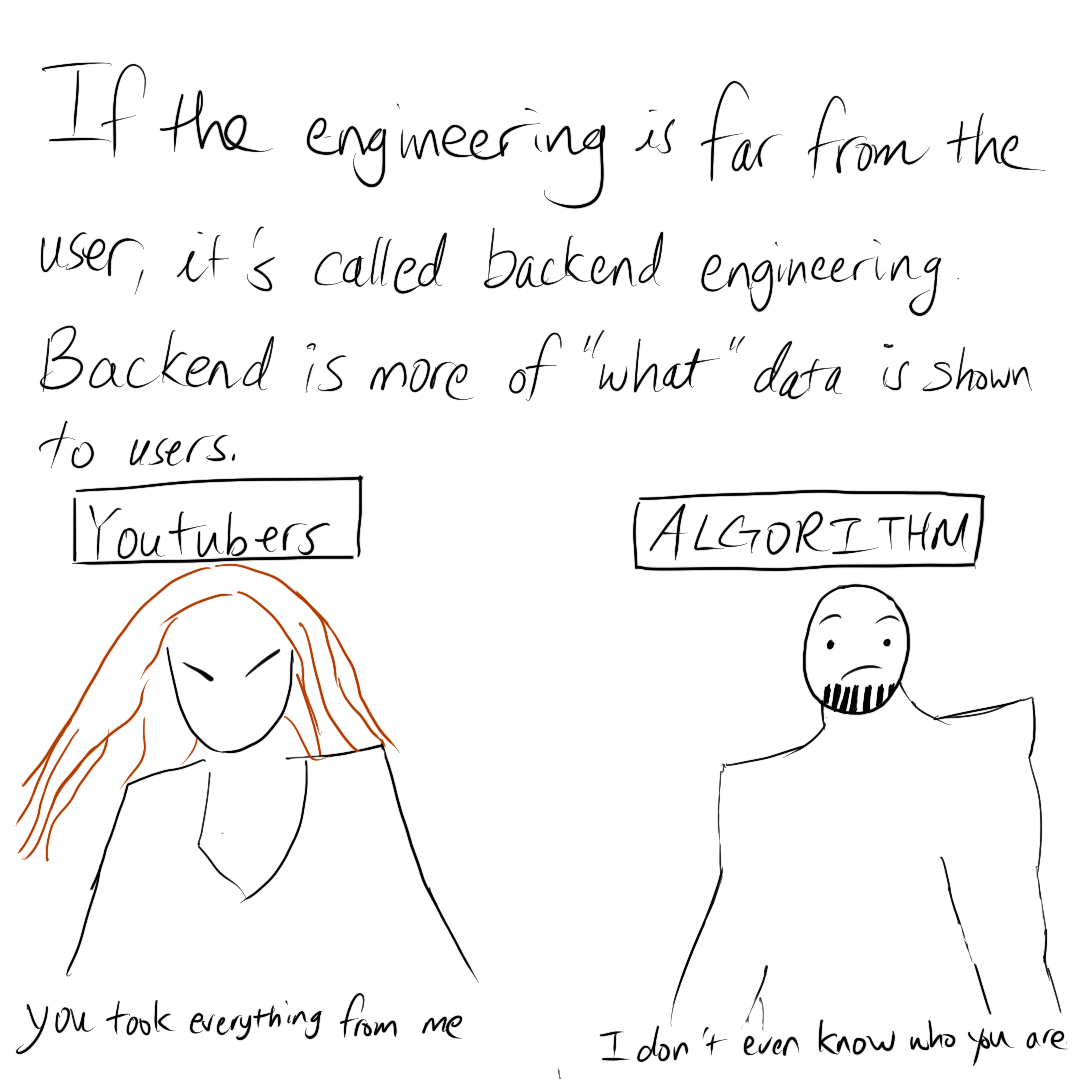 If the engineering is far from the
user, it's called backend engineering.
Backend is more of "what" data is shown
to users.
Youtubers
ALGORITHM
you took everything from me
I don't even know who you are